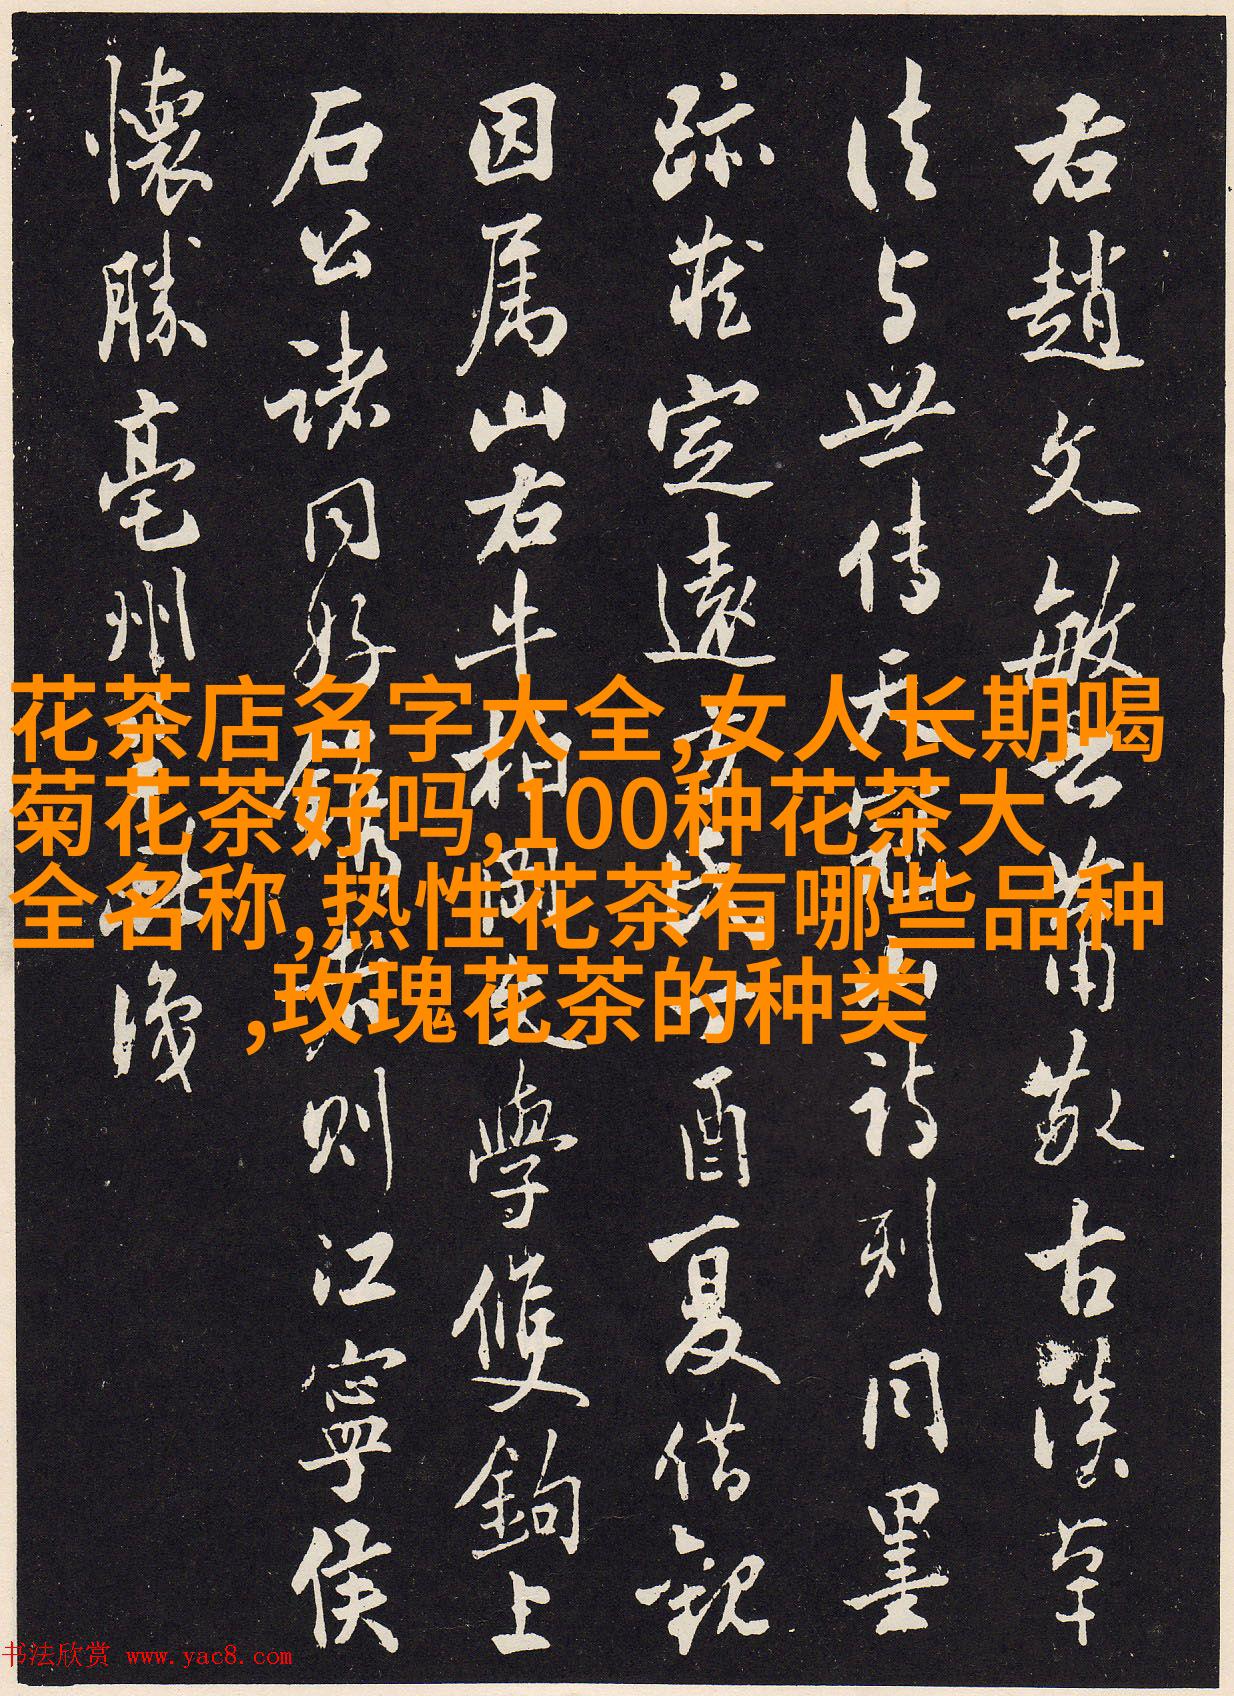 花茶店名字大全,女人长期喝
菊花茶好吗,100种花茶大
全名称,热性花茶有哪些品种
,玫瑰花茶的种类
右趙文敏 古 草
法与世傳天冠山詩刻同墨
跡藏定遠方 酉夏借觀
因属山右牛相 文學 鉤上
石公諸同好 則江寧侯
懷勝亳州
书法欣赏 www.yac8.com